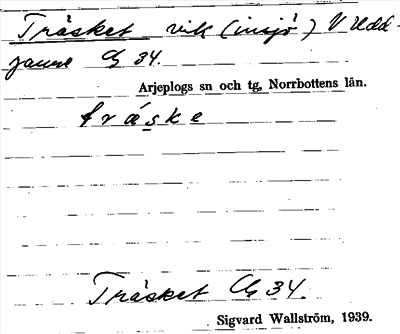 Träsket vik (insjö) V Udd-
jaure Gs 34.
Arjeplogs sn och tg, Norrbottens län.
tráske
Träsket Gs 34.
Sigvard Wallström, 1939.